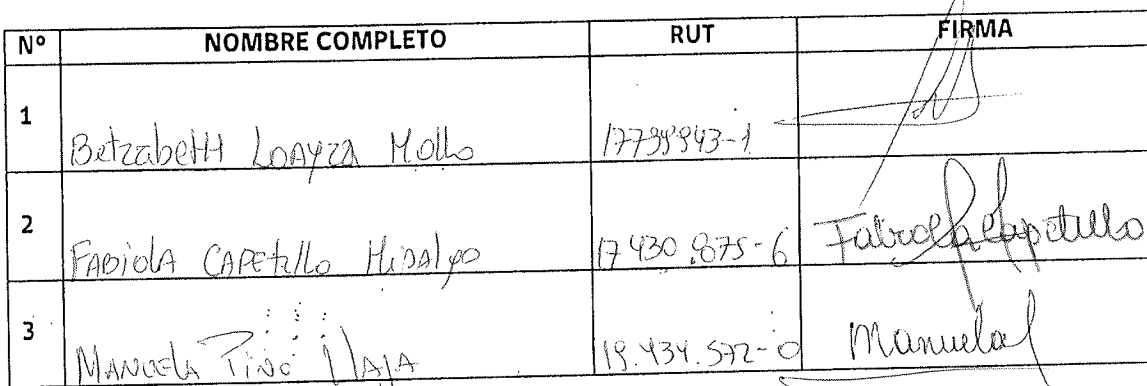 Nº NOMBRE COMPLETO RUT FIRMA
1 Betzabett Loayza Mollo 17799943-1
2 Fabiola Capetillo Hidalgo 17430.875-6 Fabiola Capetillo
3 Manuela Pino 19.434.572-0 Manuela